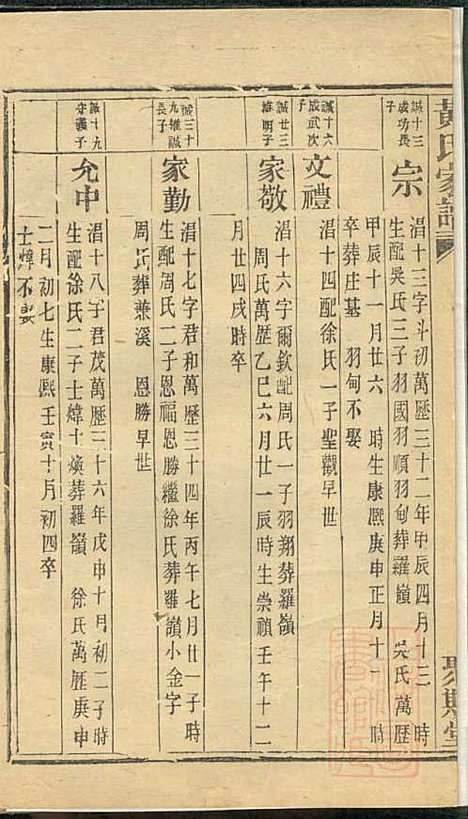 黄氏家譜
聚斯堂
誠十三
成功長
子
宗
淐十三字斗初萬歷三十二年甲辰四月十三 時
生配吳氏三子羽國羽順羽甸葬羅嶺 吳氏萬歷
甲辰十一月廿六 時生康熙庚申正月十一 時
卒葬庄基 羽甸不娶
誠十六
成武次
子
文禮
淐十四配徐氏一子聖觀早世
誠廿三
維明子
家敬
淐十六字爾欽配周氏一子羽翔葬羅嶺
周氏萬歷乙巳六月廿一辰時生崇禎壬午十二
月廿四戌時卒
誠三十
九維誠
長子
家勤
淐十七字君和萬歷三十四年丙午七月廿一子時
生配周氏二子恩福恩勝繼徐氏葬羅嶺小金字
周氏葬兼溪 恩勝早世
誠十九
守義子
允中
淐十八子君茂萬歷三十六年戊申十月初二子時
生配徐氏二子士煒士煥葬羅嶺 徐氏萬歷庚申
二月初七生康熙壬寅十月初四卒
士煒不娶